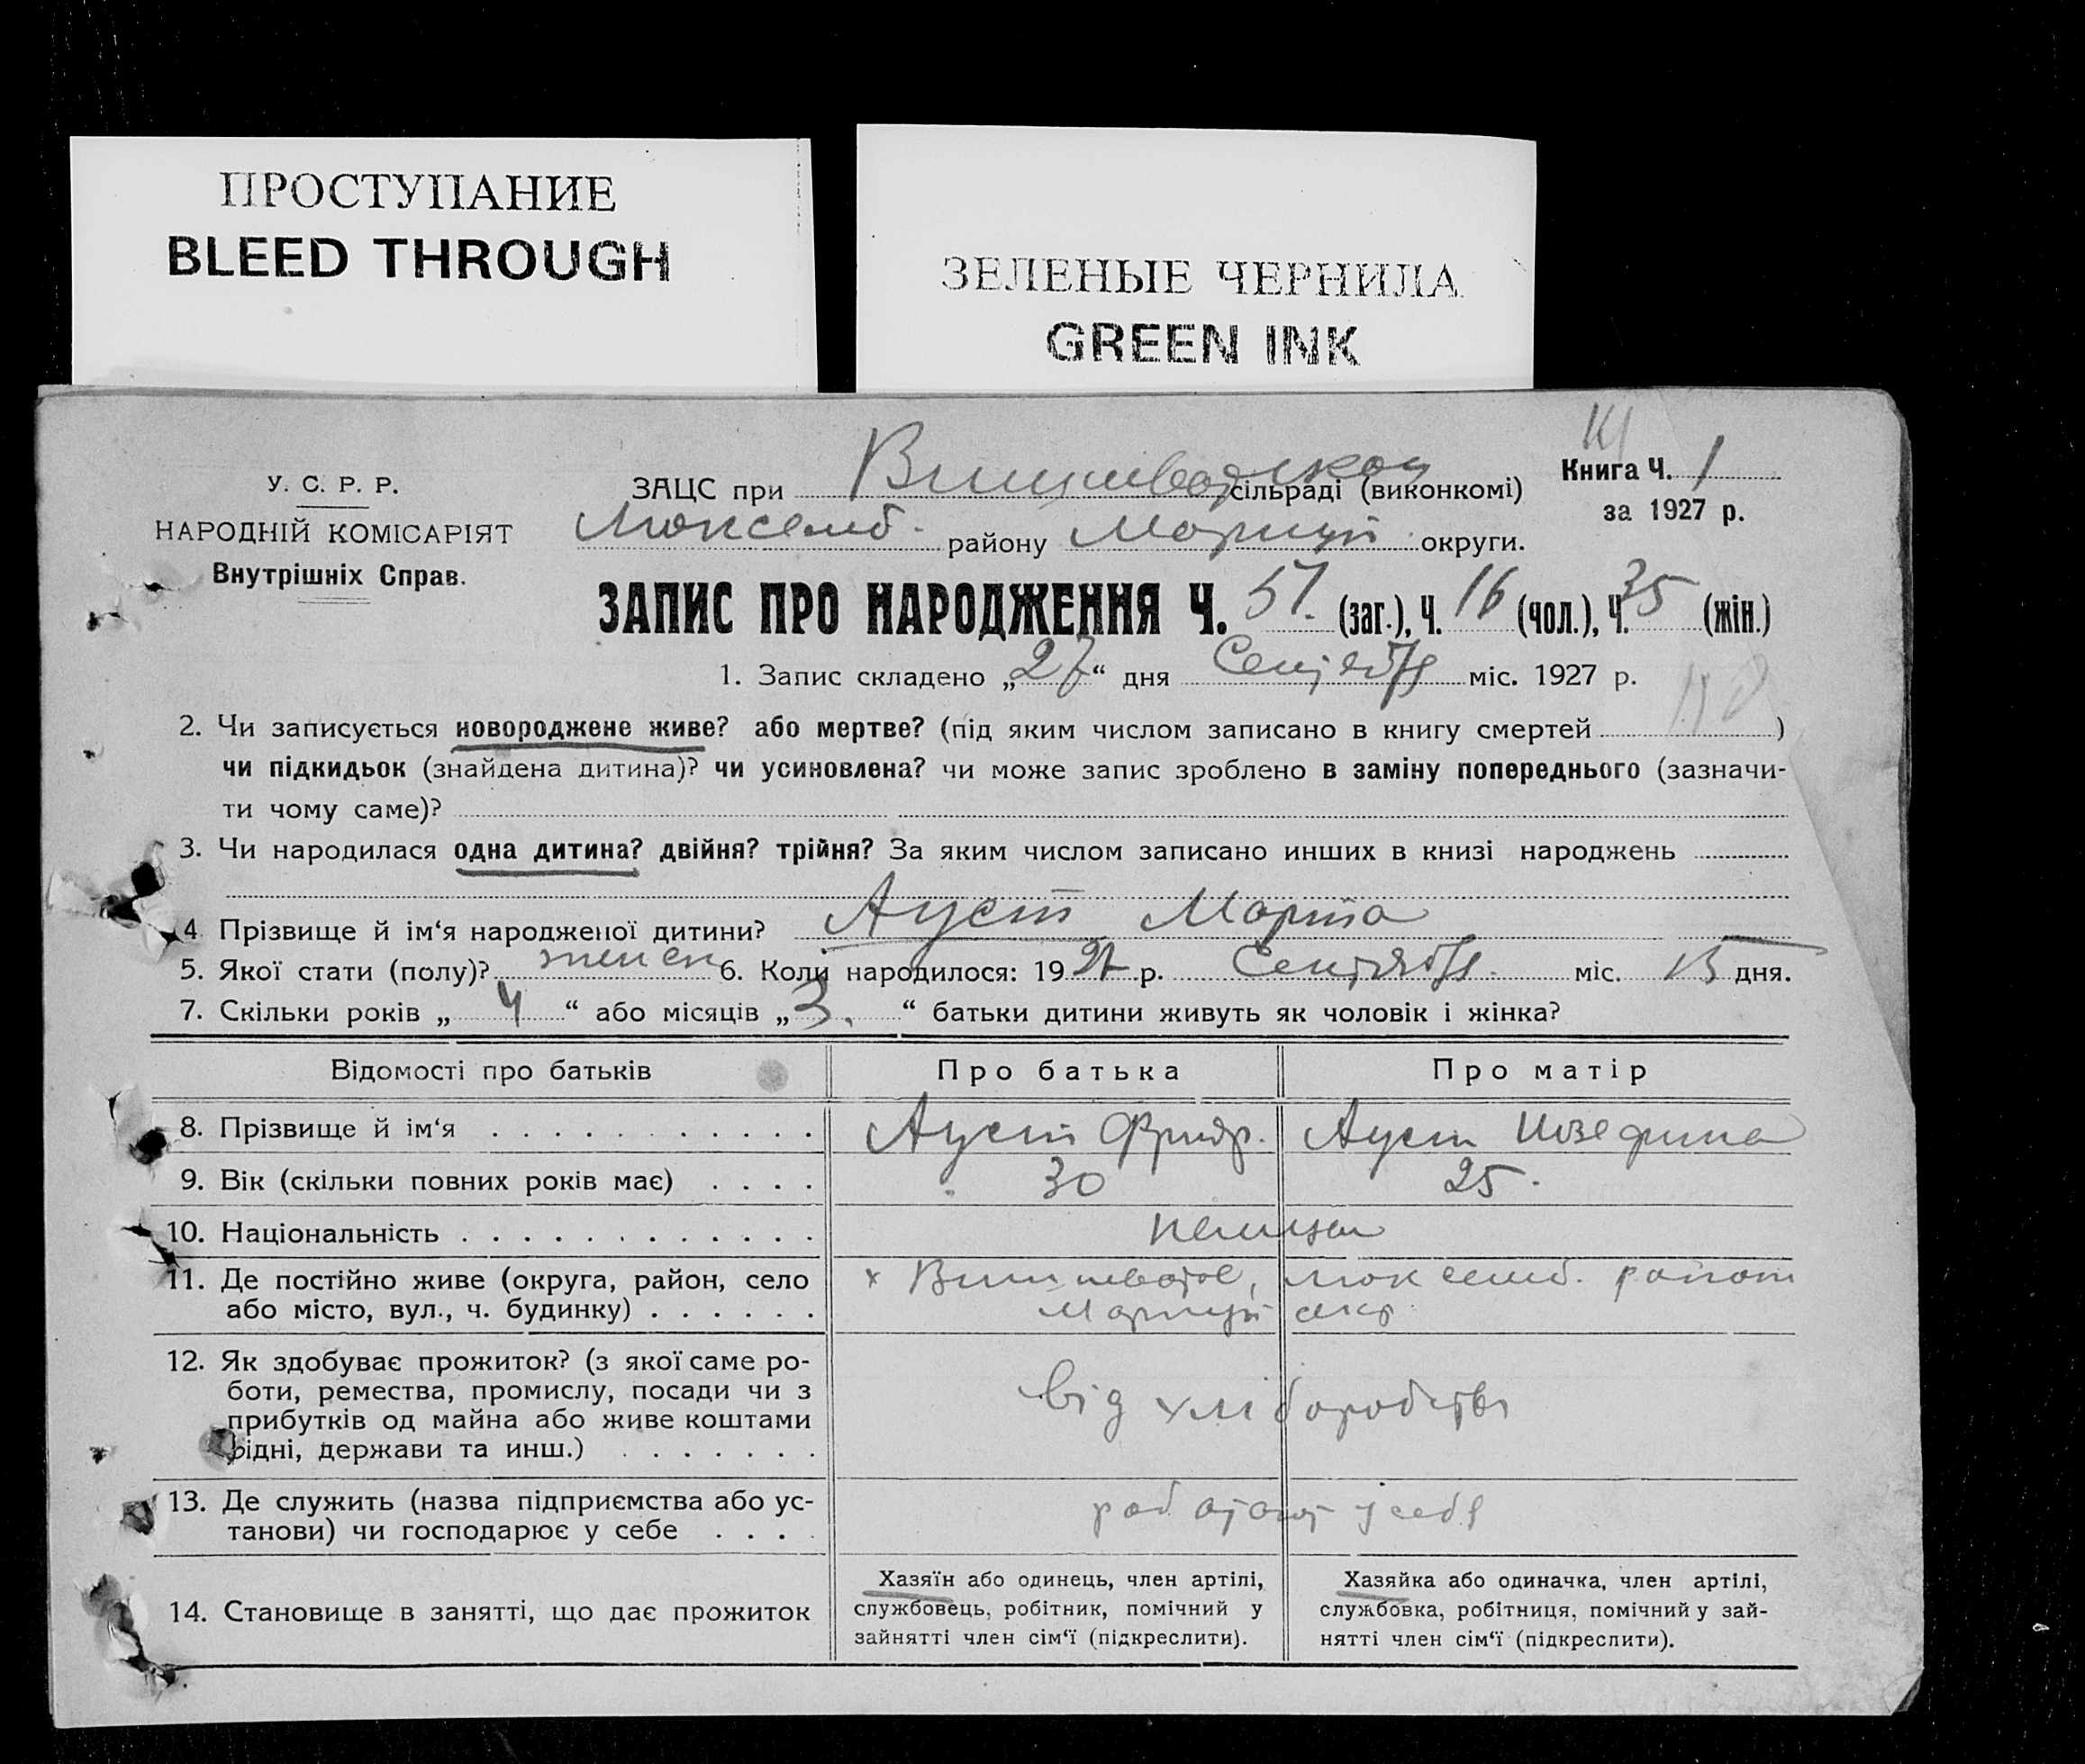 ПРОСТУПАНИЕ
BLEED THROUGH
ЗЕЛЕНЫЕ ЧЕРНИЛА
GREEN INK
У. С. Р. Р.
НАРОДНІЙ КОМІСАРІЯТ
Внутрішніх Справ.
ЗАЦС при сільраді (виконкомі)
Люксемб. району Маріуп округи.
Книга Ч. 1
за 1927 р.
ЗАПИС ПРО НАРОДЖЕННЯ Ч. 51. (заг.), Ч. 16 (чол.), Ч. 35 (жін.)
1. Запис складено „27“ дня Сентября міс. 1927 р.
2. Чи записується новороджене живе? або мертве? (під яким числом записано в книгу смертей )
чи підкидьок (знайдена дитина)? чи усиновлена? чи може запис зроблено в заміну попереднього (зазначи-
ти чому саме)?
3. Чи народилася одна дитина? двійня? трійня? За яким числом записано инших в книзі народжень
4 Прізвище й ім‘я народженої дитини? Ауст Марта
5. Якої стати (полу)? женск 6. Коли народилося: 1927 р. Сентября міс. 15 дня.
7. Скільки років „ 4 “ або місяців „ 3. “ батьки дитини живуть як чоловік і жінка?
Відомості про батьків Про батька Про матір
8. Прізвище й ім‘я Ауст Фридр. Ауст Иозефина
9. Вік (скільки повних років має) 30 25.
10. Національність немцы
11. Де постійно живе (округа, район, село х люксемб. район
або місто, вул., ч. будинку) Маріуп окр
12. Як здобуває прожиток? (з якої саме ро-
боти, ремества, промислу, посади чи з
прибутків од майна або живе коштами
рідні, держави та инш.) від хліборобства
13. Де служить (назва підприємства або ус-
танови) чи господарює у себе работают у себя
14. Становище в занятті, що дає прожиток
Хазяїн або одинець, член артілі,
службовець, робітник, помічний у
зайнятті член сім‘ї (підкреслити).
Хазяйка або одиначка, член артілі,
службовка, робітниця, помічний у зай-
нятті член сім‘ї (підкреслити).